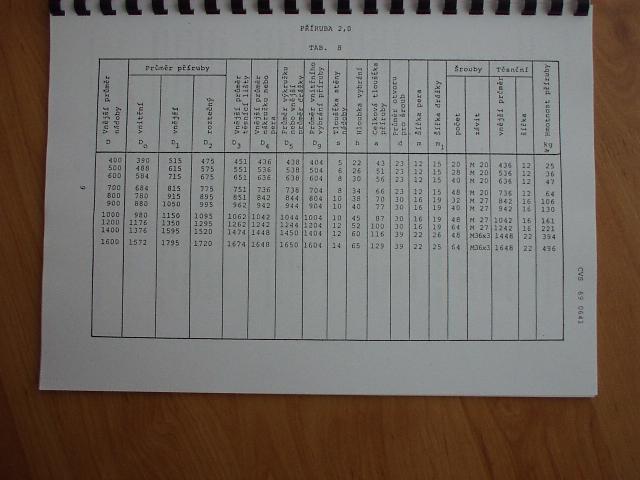 PŘÍRUBA 2,0
TAB. 8
Vnější průměr nádoby D
Průměr příruby
vnitřní D0
vnější D1
roztečný D2
Vnější průměr těsnící lišty D3
Vnější průměr nákružku nebo pera D4
Průměr výkružku nebo vnější průměr drážky D5
Průměr vnitřního vybrání příruby D9
Tloušťka stěny nádoby s
Hloubka vybrání h
Celková tloušťka příruby a
Průměr otvoru pro šroub d
Šířka pera m
Šířka drážky m1
Šrouby
počet
závit
Těsnění
vnější průměr
šířka
Hmotnost příruby kg
400 390 515 475 451 436 438 404 5 22 43 23 12 15 20 M 20 436 12 25
500 488 615 575 551 536 538 504 6 26 51 23 12 15 28 M 20 536 12 36
600 584 715 675 651 636 638 604 8 30 56 23 12 15 40 M 20 636 12 47
700 684 815 775 751 736 738 704 8 34 66 23 12 15 48 M 20 736 12 64
800 780 915 895 851 842 844 804 10 38 70 30 16 19 32 M 27 842 16 106
900 880 1050 995 962 942 944 904 10 40 77 30 16 19 40 M 27 942 16 130
1000 980 1150 1095 1062 1042 1044 1004 10 45 87 30 16 19 48 M 27 1042 16 161
1200 1176 1350 1295 1262 1242 1244 1204 12 52 100 30 16 19 64 M 27 1242 16 221
1400 1376 1595 1520 1474 1448 1450 1404 12 60 116 39 22 26 48 M36x3 1448 22 394
1600 1572 1795 1720 1674 1648 1650 1604 14 65 129 39 22 25 64 M36x3 1648 22 496
9
CVS 69 0641